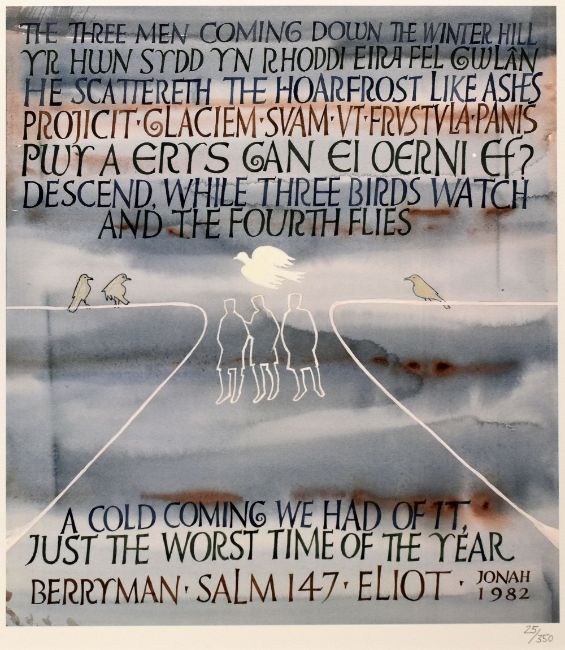 THE THREE MEN COMING DOWN THE WINTER HILL
YR HWN SYDD YN RHODDI EIRA FEL GWLÂN
HE SCATTERETH THE HOARFROST LIKE ASHES
PROJICIT · GLACIEM · SVAM · VT · FRVSTVLA · PANIS
PWY A ERYS GAN EI OERNI EF?
DESCEND, WHILE THREE BIRDS WATCH
AND THE FOURTH FLIES
A COLD COMING WE HAD OF IT,
JUST THE WORST TIME OF THE YEAR
BERRYMAN · SALM 147 · ELIOT · JONAH
1982
25/350